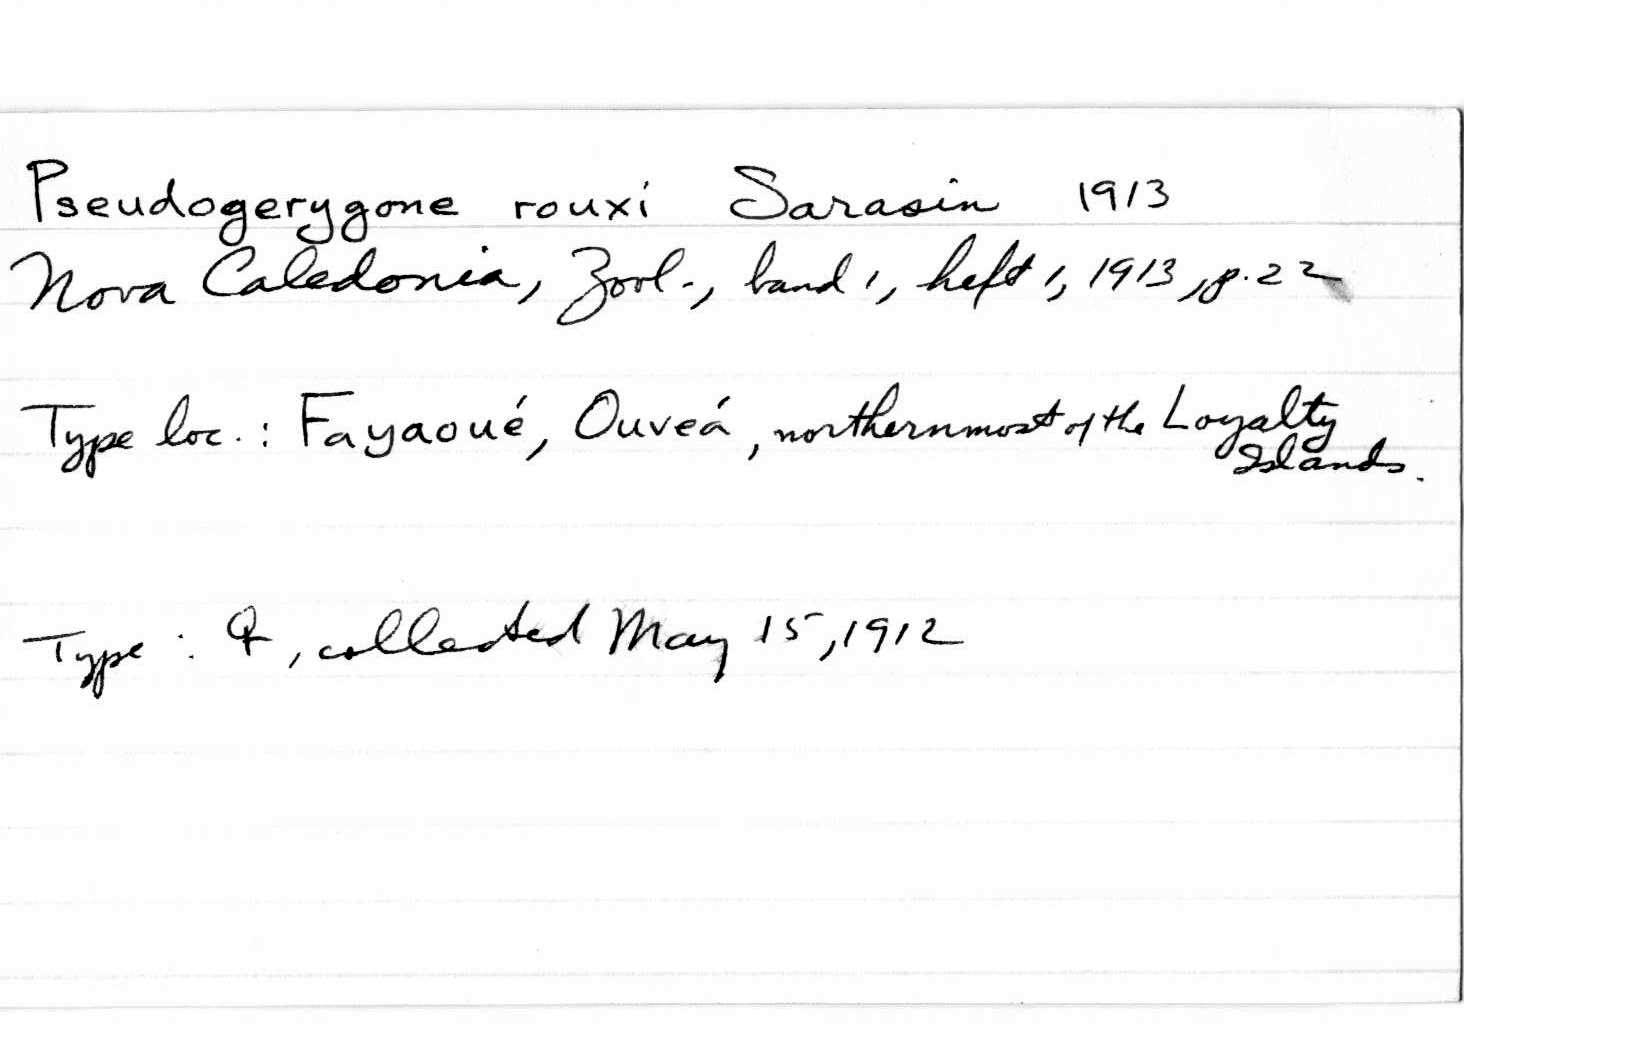 Pseudogerygone rouxi Sarasin 1913
Nova Caledonia, Zool., band 1, heft 1, 1913, p. 22
Type loc.: Fayaoué, Ouveá, northernmost of the Loyalty
Islands.
Type: ♀, collected May 15, 1912